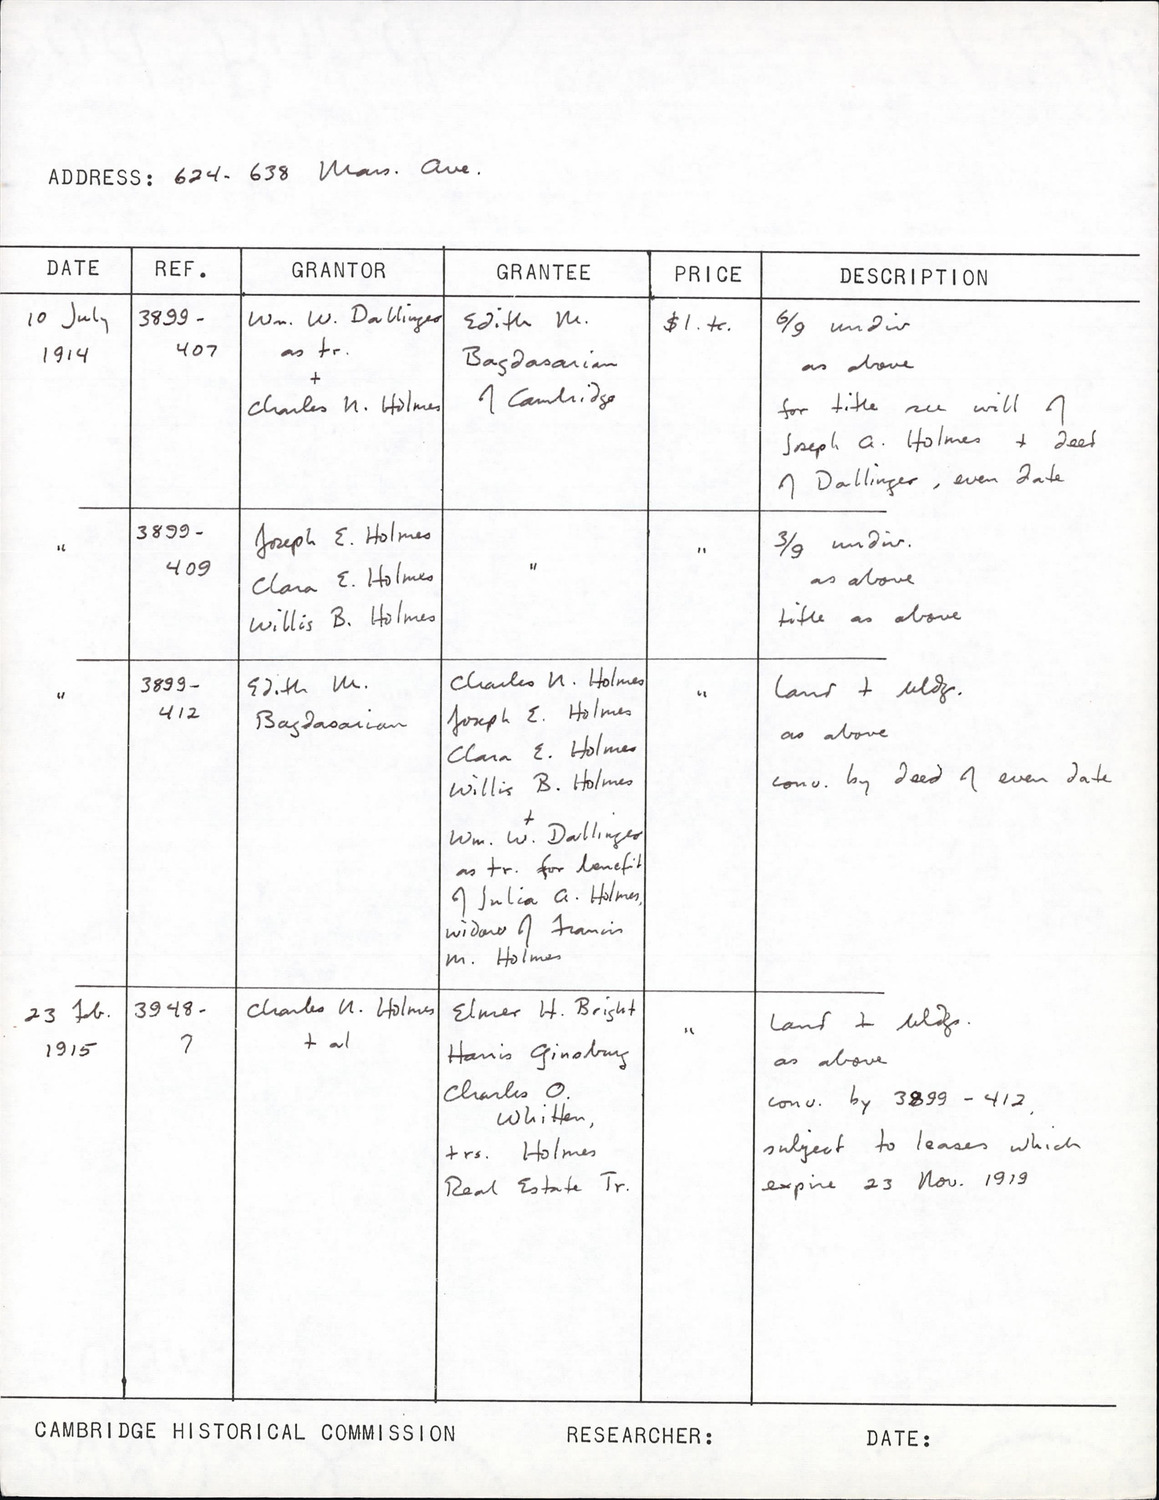 ADDRESS: 624-638 Mass. Ave.
DATE REF. GRANTOR GRANTEE PRICE DESCRIPTION
10 July
1914
3899-
407
Wm. W. Dallinger
as tr.
+
Charles N. Holmes
Edith M.
Bagdasarian
of Cambridge
$1. tc.
6/9 undiv
as above
for title see will of
Joseph A. Holmes + deed
of Dallinger, even date
"
3899-
409
Joseph E. Holmes
Clara E. Holmes
Willis B. Holmes
"
"
3/9 undiv.
as above
title as above
"
3899-
412
Edith M.
Bagdasarian
Charles N. Holmes
Joseph E. Holmes
Clara E. Holmes
Willis B. Holmes
+
Wm. W. Dallinger
as tr. for benefit
of Julia A. Holmes,
widow of Francis
M. Holmes
"
land + bldg.
as above
conv. by deed of even date
23 Feb.
1915
3948-
?
Charles N. Holmes
+ al
Elmer H. Bright
Harris Ginsburg
Charles O.
Whitten,
trs. Holmes
Real Estate Tr.
"
land + bldgs.
as above
conv. by 3899-412,
subject to leases which
expire 23 Nov. 1919
CAMBRIDGE HISTORICAL COMMISSION RESEARCHER: DATE: